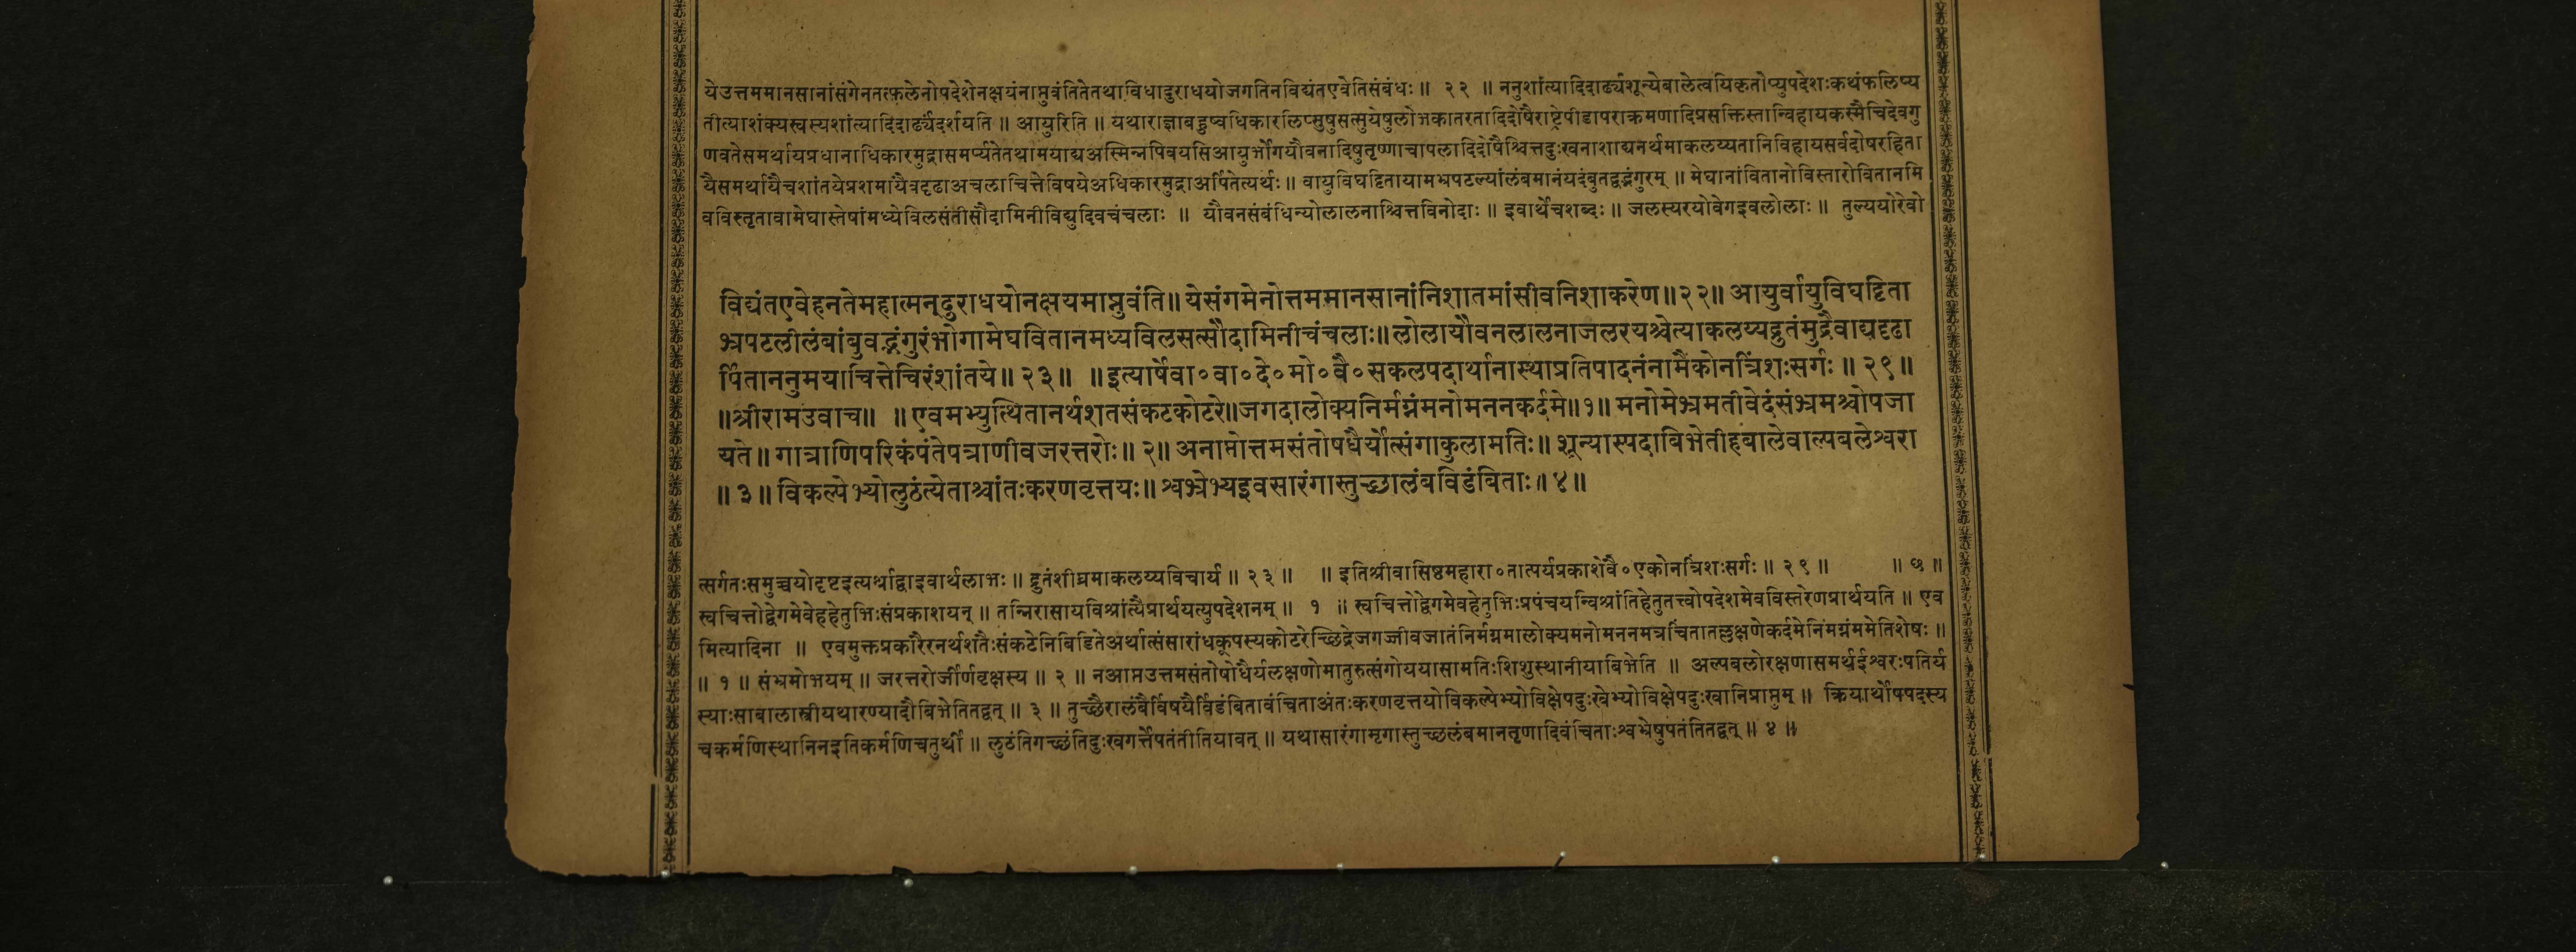 येउत्तममानसानांसंगेनतत्फलेनोपदेशेनक्षयंनाप्नुवंतितेतथाविधादुराधयोजगतिनविद्यंतएवेतिसंबंधः ॥ २२ ॥ ननुशांत्यादिदार्ढ्यशून्येबालेत्वयिकृतोप्युपदेशःकथंफलिष्य
तीत्याशंक्यस्वस्यशांत्यादिदार्ढ्यंदर्शयति ॥ आयुरिति ॥ यथाराज्ञाबहुष्वधिकारलिप्सुषुसत्सुयेषुलोभकातरतादिदोषैराष्ट्रेपीडापराक्रमणादिप्रसक्तिस्तान्विहायकस्मैचिदेवगु
णवतेसमर्थायप्रधानाधिकारमुद्रासमर्प्यतेतथामयाद्यअस्मिन्नपिवयसिआयुर्भोगयौवनादिषुतृष्णाचापलादिदोषैश्चित्तदुःखनाशाद्यनर्थमाकलय्यतानिविहायसर्वदोषरहिता
यैसमर्थायैचशांतयेप्रशमायैवदृढाअचलाचित्तेविषयेअधिकारमुद्राअर्पितेत्यर्थः ॥ वायुविघट्टितायामभ्रपटल्यांलंबमानंयदंबुतद्वद्भंगुरम् ॥ मेघानांवितानोविस्तारोवितानमि
वविस्तृतावामेघास्तेषांमध्येविलसंतीसौदामिनीविद्युदिवचंचलाः ॥ यौवनसंबंधिन्योलालनाश्चित्तविनोदाः ॥ इवार्थेचशब्दः ॥ जलस्यरयोवेगइवलोलाः ॥ तुल्ययोरेवो
विद्यंतएवेहनतेमहात्मन्दुराधयोनक्षयमाप्नुवंति ॥ येसंगमेनोत्तममानसानांनिशातमांसीवनिशाकरेण ॥ २२ ॥ आयुर्वायुविघट्टिता
भ्रपटलीलंबांबुवद्भंगुरंभोगामेघवितानमध्यविलसत्सौदामिनीचंचलाः ॥ लोलायौवनलालनाजलरयश्चेत्याकलय्यद्रुतंमुद्रैवाद्यदृढा
र्पिताननुमयाचित्तेचिरंशांतये ॥ २३ ॥ ॥ इत्यार्षेवा॰वा॰दे॰मो॰वै॰सकलपदार्थानास्थाप्रतिपादनंनामैकोनत्रिंशःसर्गः ॥ २९ ॥
॥ श्रीरामउवाच ॥ ॥ एवमभ्युत्थितानर्थशतसंकटकोटरे ॥ जगदालोक्यनिर्मग्नंमनोमननकर्दमे ॥ १ ॥ मनोमेभ्रमतीवेदंसंभ्रमश्चोपजा
यते ॥ गात्राणिपरिकंपंतेपत्राणीवजरत्तरोः ॥ २ ॥ अनाप्तोत्तमसंतोषधैर्योत्संगाकुलामतिः ॥ शून्यास्पदाबिभेतीहबालेवाल्पबलेश्वरा
॥ ३ ॥ विकल्पेभ्योलुठंत्येताश्चांतःकरणवृत्तयः ॥ श्वभ्रेभ्यइवसारंगास्तुच्छालंबविडंबिताः ॥ ४ ॥
त्सर्गतःसमुच्चयोदृष्टइत्यर्थाद्वाइवार्थलाभः ॥ द्रुतंशीघ्रमाकलय्यविचार्य ॥ २३ ॥ ॥ इतिश्रीवासिष्ठमहारा॰तात्पर्यप्रकाशेवै॰एकोनत्रिंशःसर्गः ॥ २९ ॥ ॥ छ ॥
स्वचित्तोद्वेगमेवेहहेतुभिःसंप्रकाशयन् ॥ तन्निरासायविश्रांत्यैप्रार्थयत्युपदेशनम् ॥ १ ॥ स्वचित्तोद्वेगमेवहेतुभिःप्रपंचयन्विश्रांतिहेतुतत्त्वोपदेशमेवविस्तरेणप्रार्थयति ॥ एव
मित्यादिना ॥ एवमुक्तप्रकारैरनर्थशतैःसंकटेनिबिडितेअर्थात्संसारांधकूपस्यकोटरेच्छिद्रेजगज्जीवजातंनिर्मग्नमालोक्यमनोमननमत्रचिंतातल्लक्षणेकर्दमेनिमग्नंममेतिशेषः ॥
॥ १ ॥ संभ्रमोभयम् ॥ जरत्तरोर्जीर्णवृक्षस्य ॥ २ ॥ नआप्तउत्तमसंतोषोधैर्यलक्षणोमातुरुत्संगोययासामतिःशिशुस्थानीयाबिभेति ॥ अल्पबलोरक्षणासमर्थईश्वरःपतिर्य
स्याःसाबालास्त्रीयथारण्यादौबिभेतितद्वत् ॥ ३ ॥ तुच्छैरालंबैर्विषयैर्विडंबितावंचिताअंतःकरणवृत्तयोविकल्पेभ्योविक्षेपदुःखेभ्योविक्षेपदुःखानिप्राप्तुम् ॥ क्रियार्थोपपदस्य
चकर्मणिस्थानिनइतिकर्मणिचतुर्थी ॥ लुठंतिगच्छंतिदुःखगर्त्तेपतंतीतियावत् ॥ यथासारंगामृगास्तुच्छलंबमानतृणादिवंचिताःश्वभ्रेषुपतंतितद्वत् ॥ ४ ॥